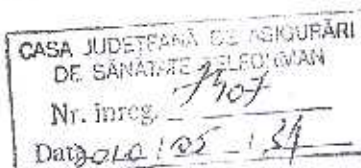 CASA JUDEŢEANĂ DE ASIGURĂRI
DE SĂNĂTATE TELEORMAN
Nr. înreg.
Data 2010 / 05 / 31